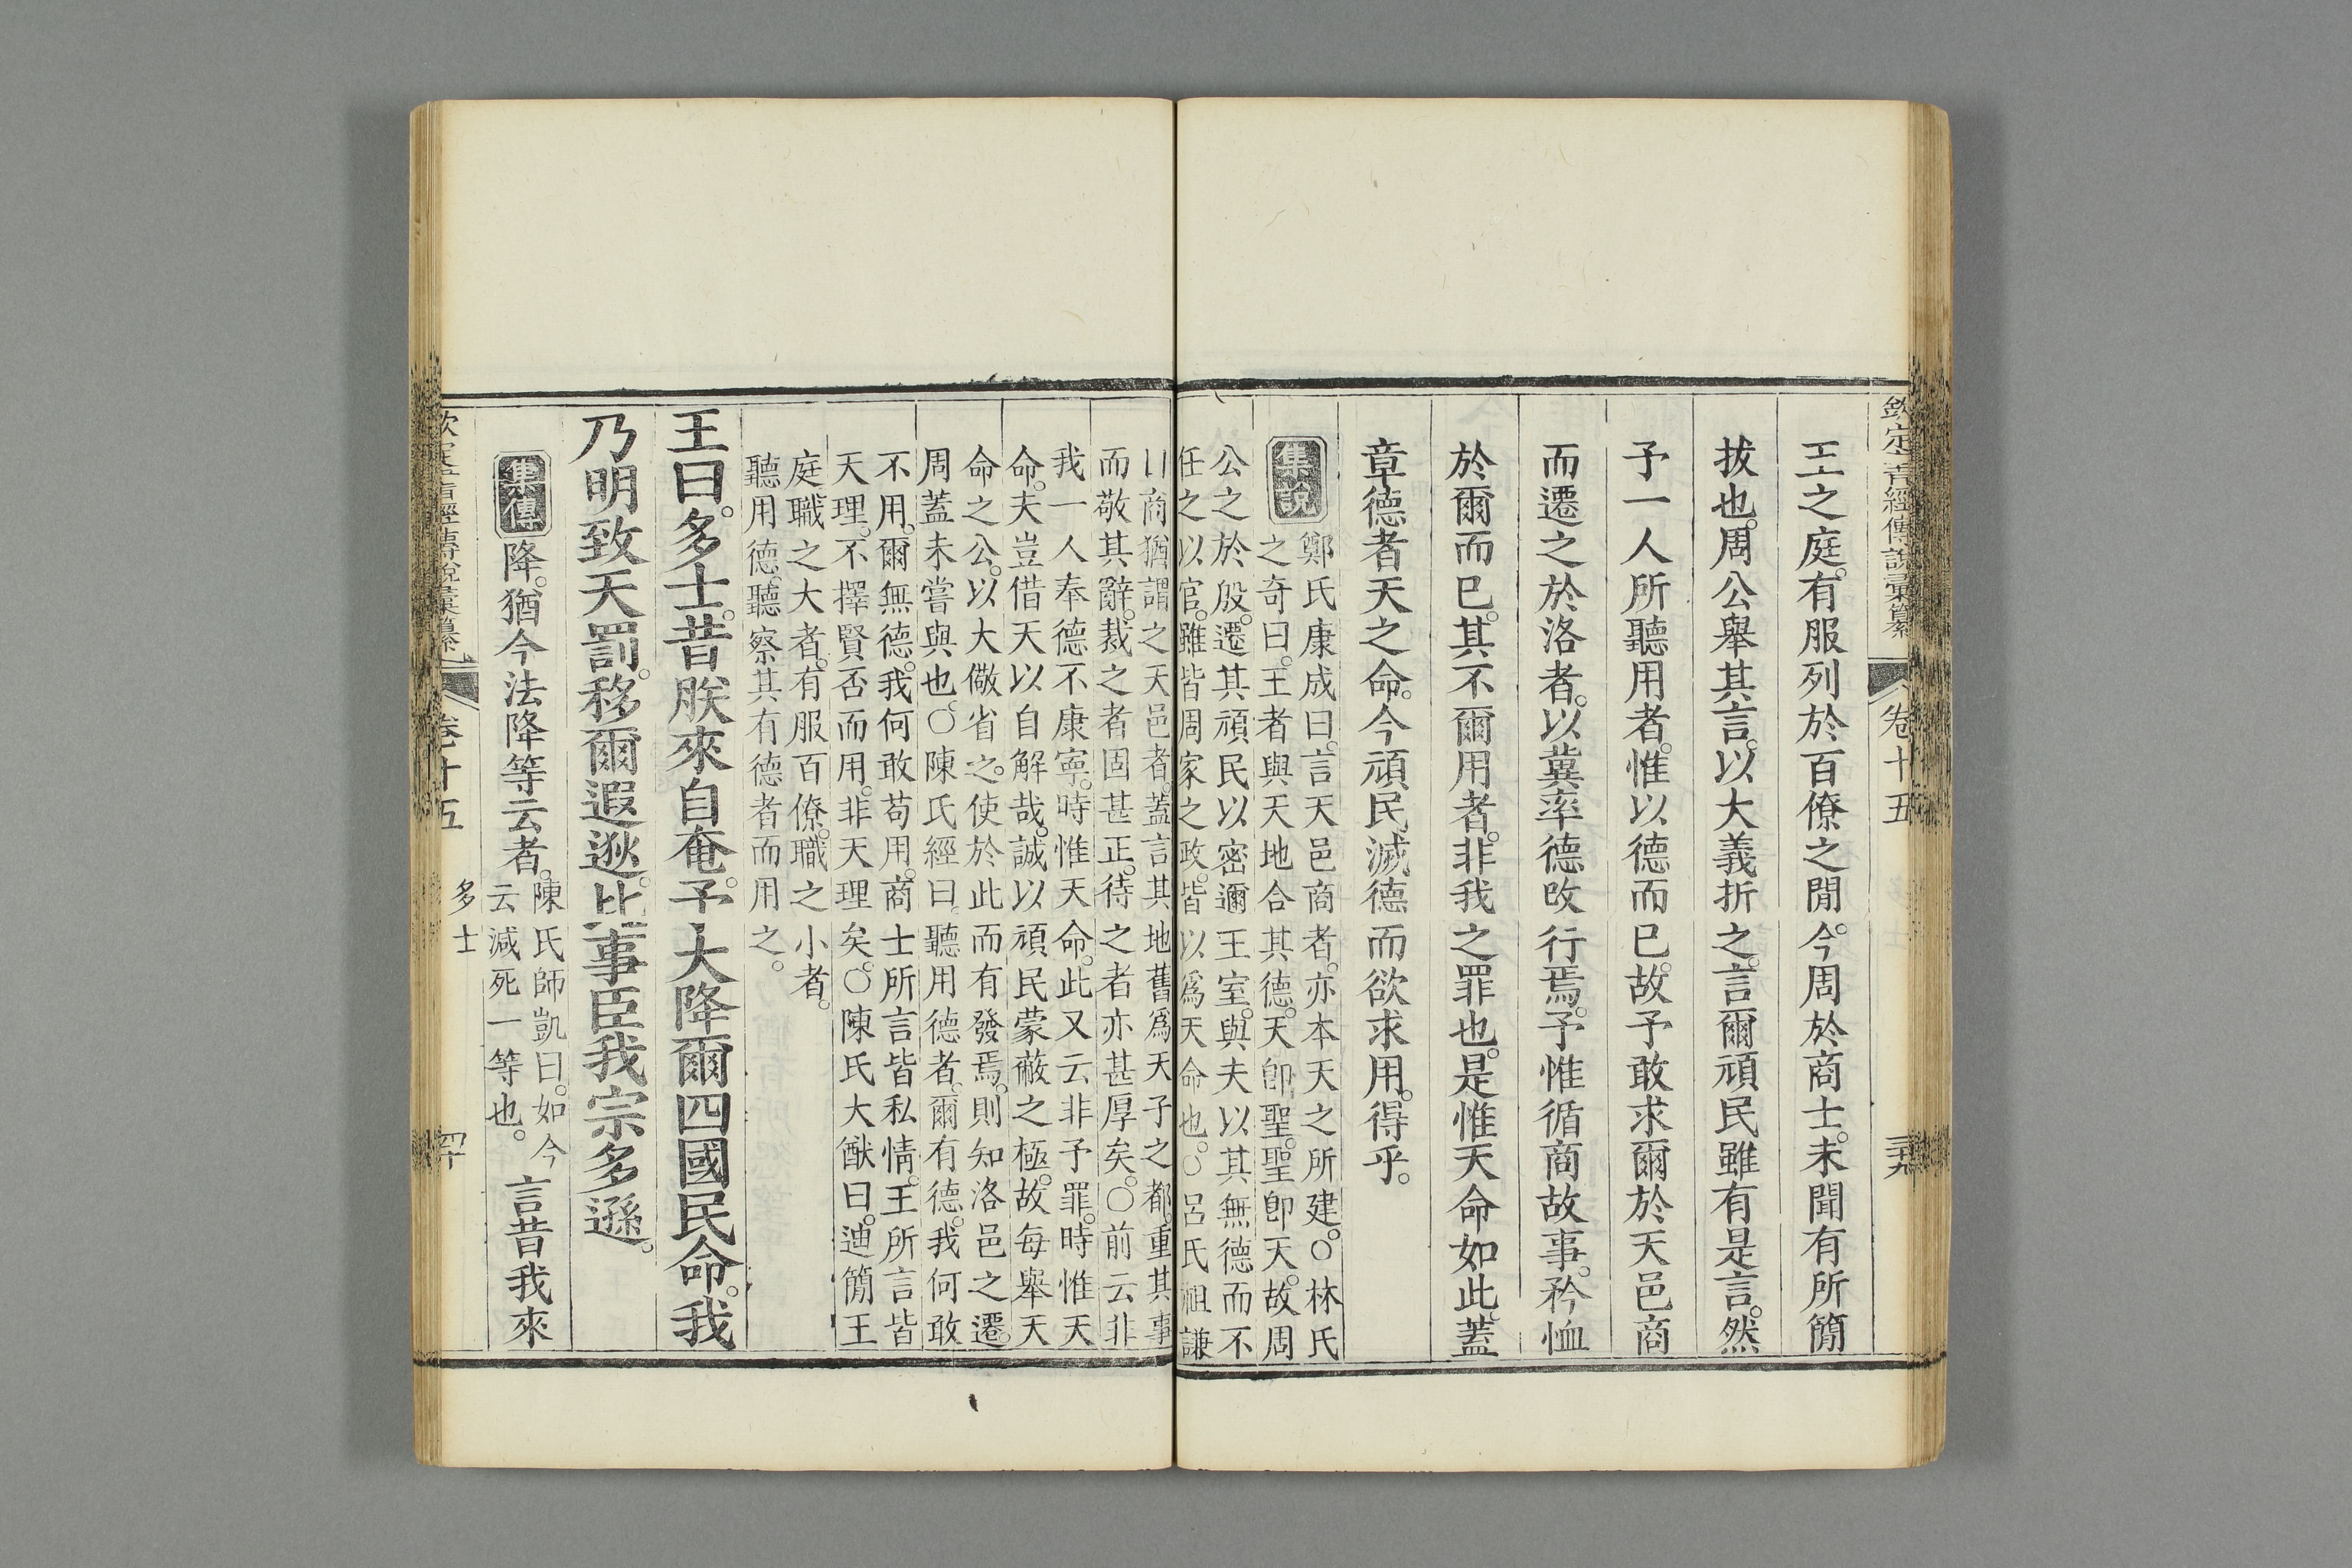 欽定書經傳說彙纂 卷十五 三十九
王之庭。有服列於百僚之閒。今周於商士。未聞有所簡
拔也。周公舉其言。以大義折之。言爾頑民雖有是言。然
予一人所聽用者。惟以德而已。故予敢求爾於天邑商
而遷之於洛者。以冀率德改行焉。予惟循商故事。矜恤
於爾而已。其不爾用者。非我之罪也。是惟天命如此。蓋
章德者天之命。今頑民滅德而欲求用。得乎。
集說
鄭氏康成曰。言天邑商者。亦本天之所建。○林氏
之奇曰。王者與天地合其德。天卽聖。聖卽天。故周
公之於殷。遷其頑民以密邇王室。與夫以其無德而不
任之以官。雖皆周家之政。皆以爲天命也。○呂氏祖謙
曰商猶謂之天邑者。蓋言其地舊爲天子之都。重其事
而敬其辭。裁之者固甚正。待之者亦甚厚矣。○前云非
我一人奉德不康寧。時惟天命。此又云非予罪。時惟天
命。夫豈借天以自解哉。誠以頑民蒙蔽之極。故每舉天
命之公。以大儆省之。使於此而有發焉。則知洛邑之遷。
周蓋未嘗與也。○陳氏經曰。聽用德者。爾有德。我何敢
不用。爾無德。我何敢苟用。商士所言皆私情。王所言皆
天理。不擇賢否而用。非天理矣。○陳氏大猷曰。迪簡王
庭職之大者。有服百僚。職之小者。
聽用德。聽察其有德者而用之。
王曰。多士。昔朕來自奄。予大降爾四國民命。我
乃明致天罰。移爾遐逖。比事臣我宗多遜。
集傳
降。猶今法降等云者。
陳氏師凱曰。如今
云減死一等也。
言昔我來
欽定書經傳說彙纂 卷十五 多士 四十